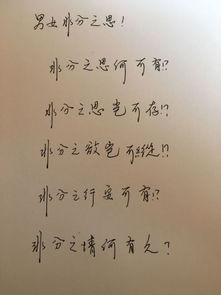 男女非分之思!
非分之思何可有!?
非分之思岂可存!?
非分之欲岂可纵!!?
非分之行安可有!?
非分之情何有久?